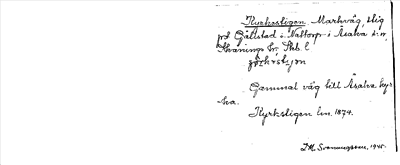 Kyrkstigen, Markväg, stig
på Gällstad i Valtorp i Åsaka sn,
Skånings hd, Skb. l.
Gammal väg till Åsaka kyr-
ka.
Kyrkstigen lm. 1874.
J. M. Svenungsson, 1945.